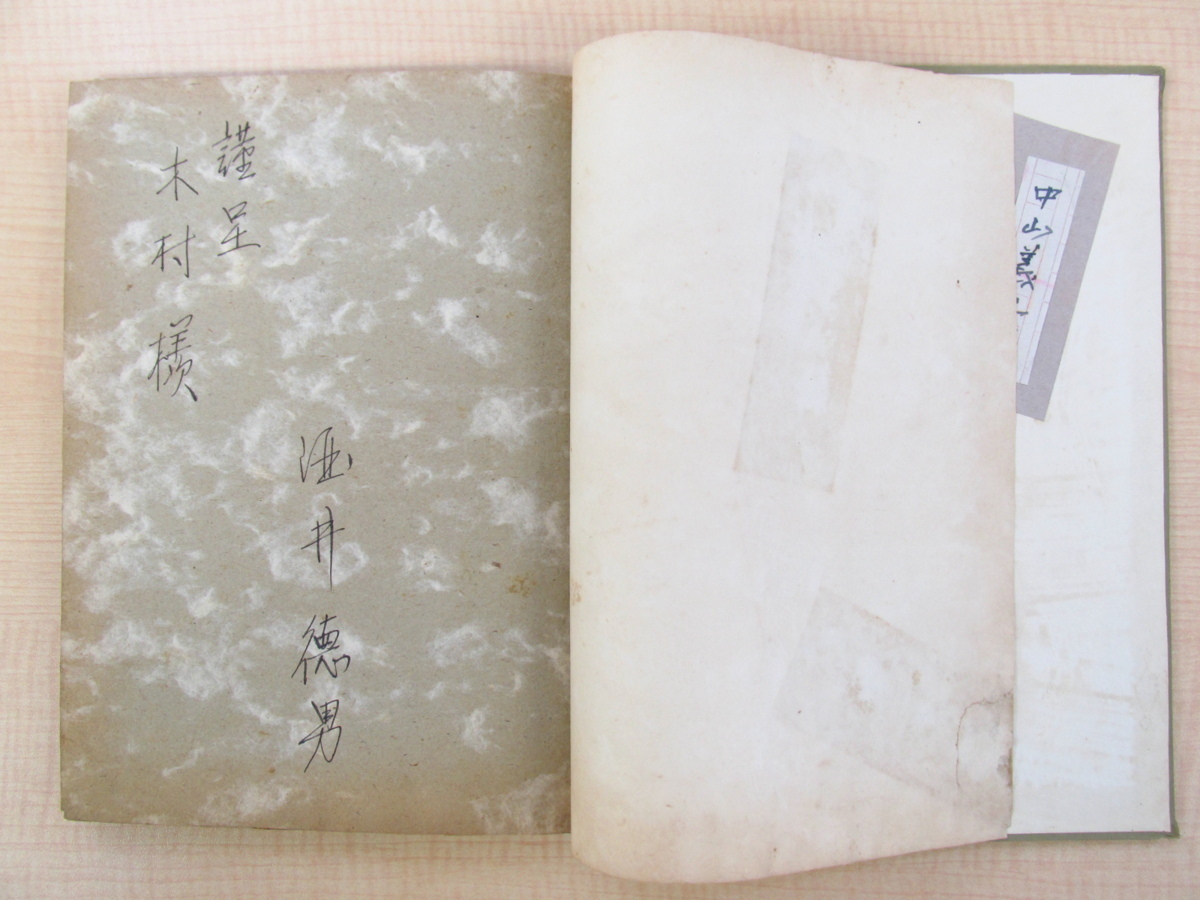 謹呈
木村様
酒井徳男
中山義